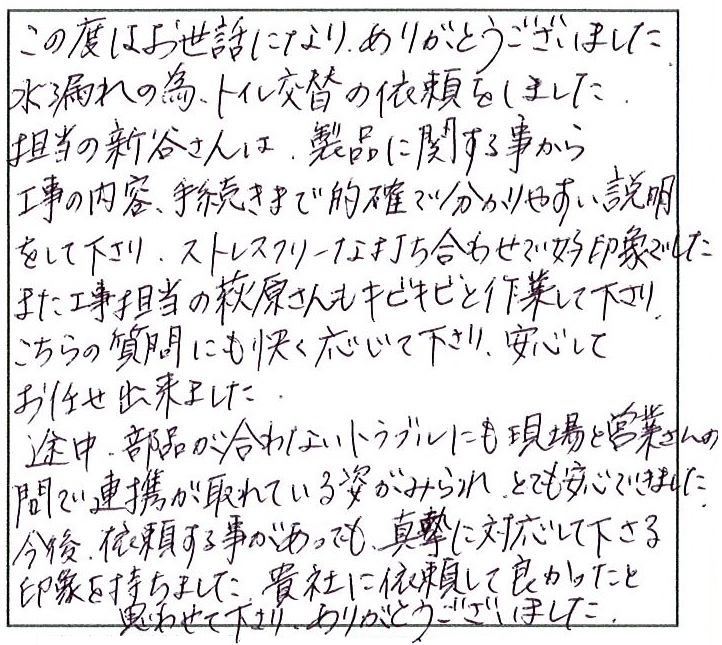 この度はお世話になり、ありがとうございました
水漏れの為、トイレ交替の依頼をしました。
担当の新谷さんは、製品に関する事から
工事の内容、手続きまで的確で分かりやすい説明
をして下さり、ストレスフリーな打ち合わせで好印象でした
また工事担当の萩原さんもキビキビと作業して下さり、
こちらの質問にも快く応じて下さり、安心して
お任せ出来ました。
途中、部品が合わないトラブルにも現場と営業さんの
間で連携が取れている姿がみられ、とても安心できました
今後、依頼する事があっても、真摯に対応して下さる
印象を持ちました。貴社に依頼して良かったと
思わせて下さり、ありがとうございました。